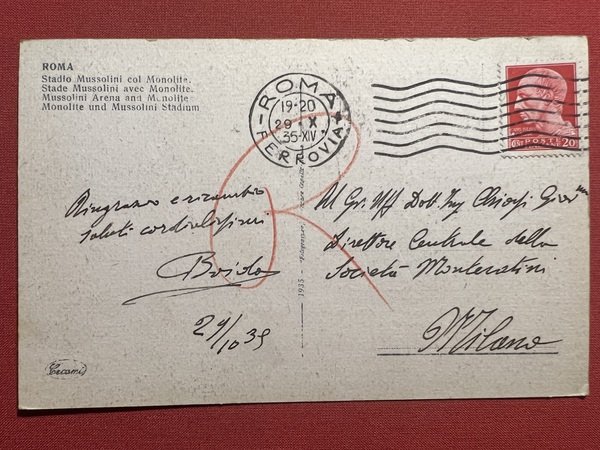 ROMA
Stadio Mussolini col Monolite.
Stade Mussolini avec Monolite.
Mussolini Arena and Monolite
Monolite und Mussolini Stadium
ROMA
19-20
29 X
35-XIV
FERROVIA
POSTE
20
Ringrazio e ricambio
saluti cordialissimi
29/10 35
Al Gr. Uff Dott. Ing
Direttore Centrale della
Società Montecatini
Milano
R
1935